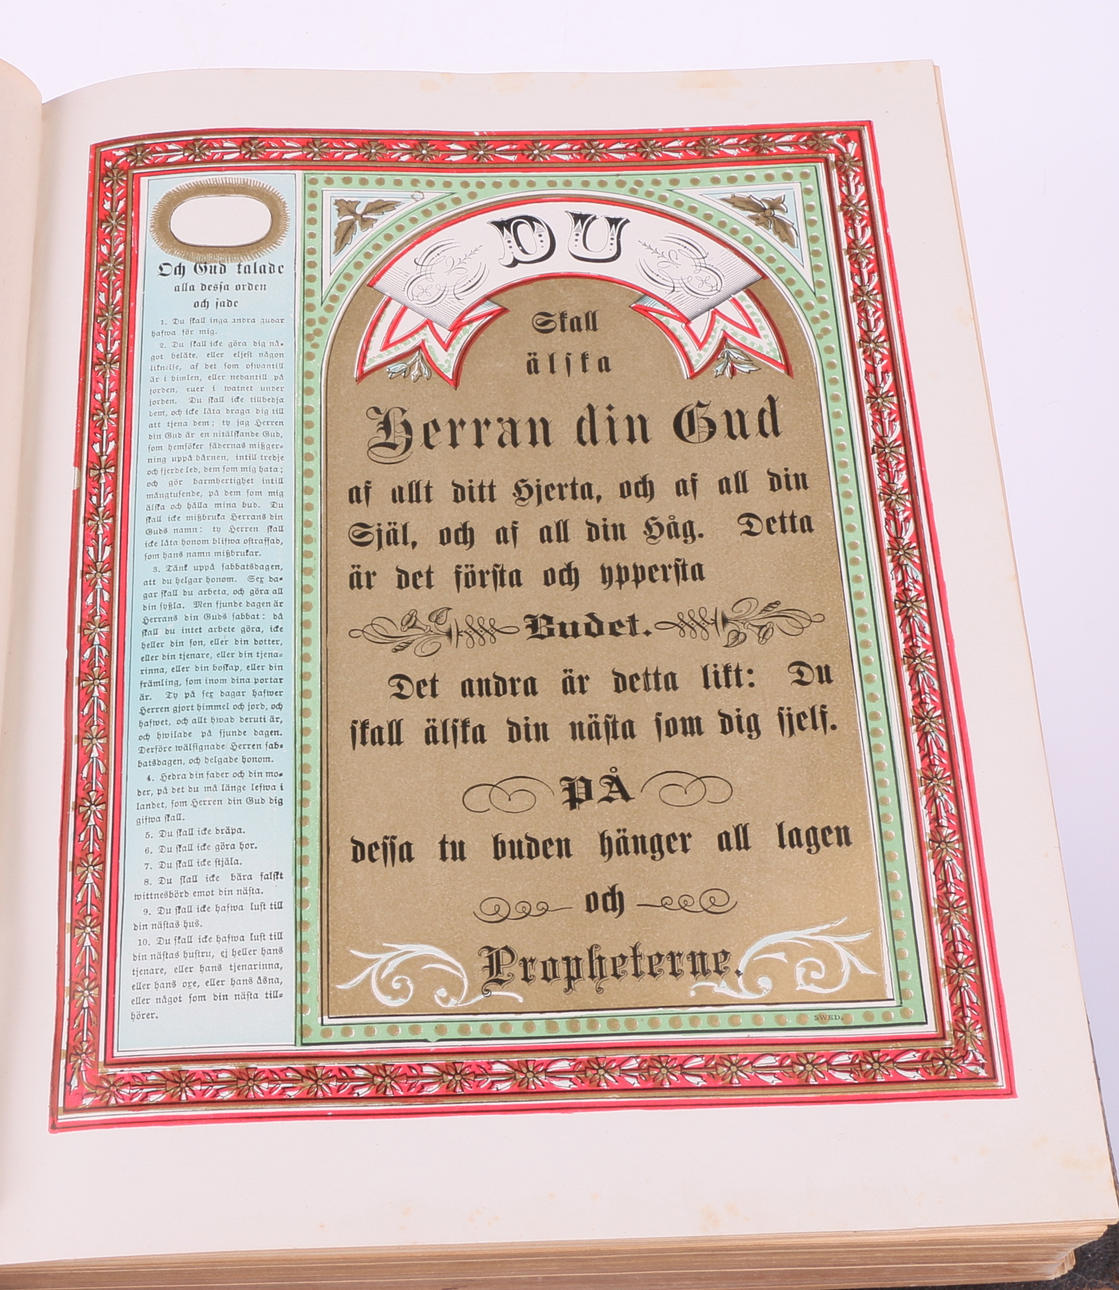 Och Gud talade
alla dessa orden
och sade
1. Du skall inga andra gudar
hafwa för mig.
2. Du skall icke göra dig nå-
got beläte, eller eljest någon
liknelse, af det som ofwantill
är i himlen, eller nedantill på
jorden, eller i watnet under
jorden. Du skall icke tillbedja
dem, och icke låta draga dig till
att tjena dem; ty jag Herren
din Gud är en nitälskande Gud,
som hemsöker fädernas missger-
ning uppå barnen, intill tredje
och fjerde led, dem som mig hata;
och gör barmhertighet intill
mångtusende, på dem som mig
älska och hålla mina bud. Du
skall icke missbruka Herrans din
Guds namn: ty Herren skall
icke låta honom blifwa ostraffad,
som hans namn missbrukar.
3. Tänk uppå sabbatsdagen,
att du helgar honom. Sex da-
gar skall du arbeta, och göra all
din syssla. Men sjunde dagen är
Herrans din Guds sabbat: då
skall du intet arbete göra, icke
heller din son, eller din dotter,
eller din tjenare, eller din tjena-
rinna, eller din boskap, eller din
främling, som inom dina portar
är. Ty på sex dagar hafwer
Herren gjort himmel och jord, och
hafwet, och allt hwad deruti är,
och hwilade på sjunde dagen.
Derföre wälsignade Herren sab-
batsdagen, och helgade honom.
4. Hedra din fader och din mo-
der, på det du må länge lefwa i
landet, som Herren din Gud dig
gifwa skall.
5. Du skall icke dräpa.
6. Du skall icke göra hor.
7. Du skall icke stjäla.
8. Du skall icke bära falskt
wittnesbörd emot din nästa.
9. Du skall icke hafwa lust till
din nästas hus.
10. Du skall icke hafwa lust till
din nästas hustru, ej heller hans
tjenare, eller hans tjenarinna,
eller hans oxe, eller hans åsna,
eller något som din nästa till-
hörer.
DU
Skall
älska
Herran din Gud
af allt ditt Hjerta, och af all din
Själ, och af all din Håg. Detta
är det första och ypperska
Budet.
Det andra är detta likt: Du
skall älska din nästa som dig sjelf.
PÅ
dessa tu buden hänger all lagen
och
Propheterne.
SWED.